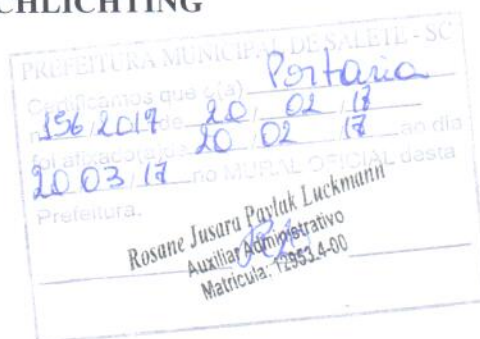 CHLICHTING
PREFEITURA MUNICIPAL DE SALETE - SC
Certificamos que o(a) Portaria
nº 156/2017 de 20 / 02 / 17
foi afixado(a) de 20 / 02 / 17 ao dia
20 03 / 17 no MURAL OFICIAL desta
Prefeitura.
Rosane Jusara Pavlak Luckmann
Auxiliar Administrativo
Matricula: 12953.4-00